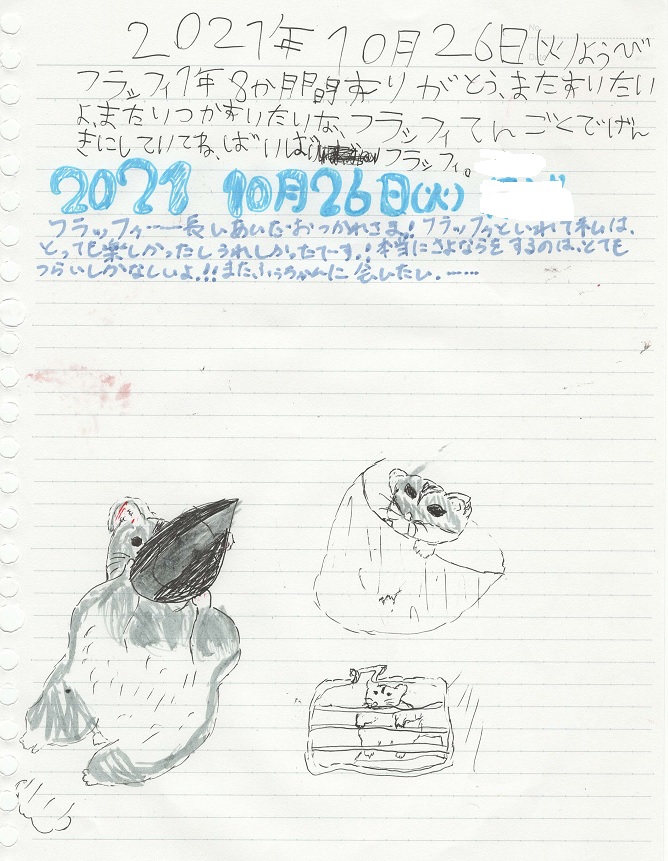 2021年 10月26日(火)ようび
フラッフィ1年8か月間ありがとう、またあいたい
よ、またいつかあいたいな、フラッフィてんごくでげん
きにしていてね、ばいばい フラッフィ。
2021 10月26日(火)
フラッフィー……長いあいだおつかれさま!フラッフィといれて私は、
とっても楽しかったしうれしかったでーす!本当にさよならをするのは、とても
つらいしかなしいよ!!また、ふぅちゃんに会いたい……